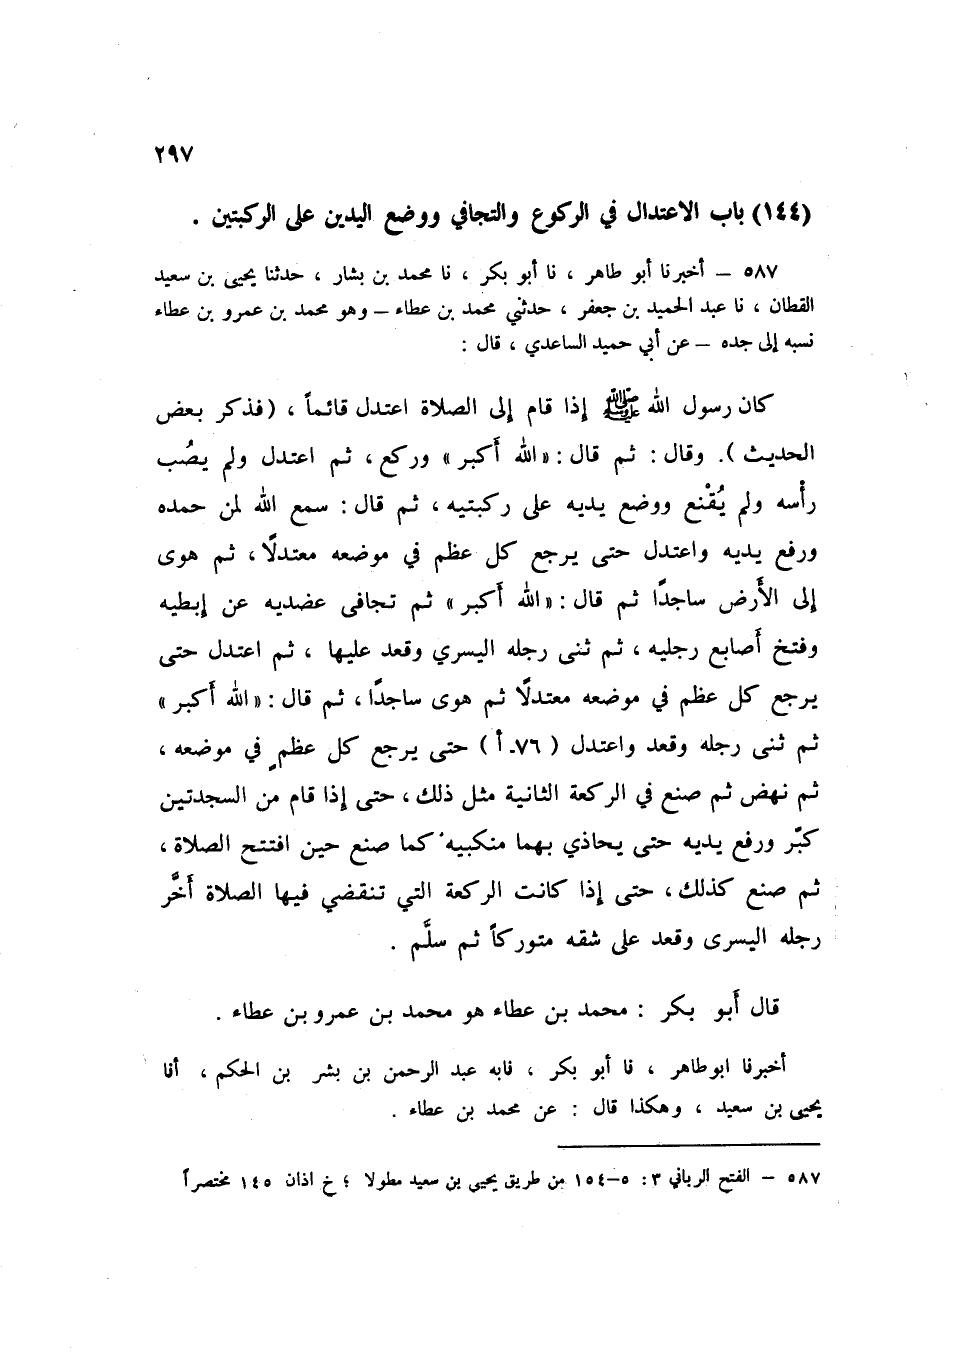 ٢٩٧
(١٤٤) باب الاعتدال في الركوع والتجافي ووضع اليدين على الركبتين .
٥٨٧ – أخبرنا أبو طاهر ، نا أبو بكر ، نا محمد بن بشار ، حدثنا يحيى بن سعيد
القطان ، نا عبد الحميد بن جعفر ، حدثني محمد بن عطاء – وهو محمد بن عمرو بن عطاء
نسبه إلى جده – عن أبي حميد الساعدي ، قال :
كان رسول الله ﷺ إذا قام إلى الصلاة اعتدل قائماً ، (فذكر بعض
الحديث ). وقال : ثم قال : «الله أكبر» وركع ، ثم اعتدل ولم يصُب
رأسه ولم يُقْنع ووضع يديه على ركبتيه ، ثم قال : سمع الله لمن حمده
ورفع يديه واعتدل حتى يرجع كل عظم في موضعه معتدلًا ، ثم هوى
إلى الأرض ساجدًا ثم قال : «الله أكبر» ثم تجافى عضديه عن إبطيه
وفتخ أصابع رجليه ، ثم ثنى رجله اليسري وقعد عليها ، ثم اعتدل حتى
يرجع كل عظم في موضعه معتدلًا ثم هوى ساجدًا ، ثم قال : «الله أكبر»
ثم ثنى رجله وقعد واعتدل ( ٧٦ـ أ ) حتى يرجع كل عظمٍ في موضعه ،
ثم نهض ثم صنع في الركعة الثانية مثل ذلك ، حتى إذا قام من السجدتين
كبّر ورفع يديه حتى يحاذي بهما منكبيه كما صنع حين افتتح الصلاة ،
ثم صنع كذلك ، حتى إذا كانت الركعة التي تنقضي فيها الصلاة أخَّر
رجله اليسرى وقعد على شقه متوركاً ثم سلَّم .
قال أبو بكر : محمد بن عطاء هو محمد بن عمرو بن عطاء .
أخبرنا ابوطاهر ، نا أبو بكر ، نابه عبد الرحمن بن بشر بن الحكم ، أنا
يحيى بن سعيد ، وهكذا قال : عن محمد بن عطاء .
٥٨٧ – الفتح الرباني ٣ : ٥–١٥٤ من طريق يحيى بن سعيد مطولا ؛ خ اذان ١٤٥ مختصراً